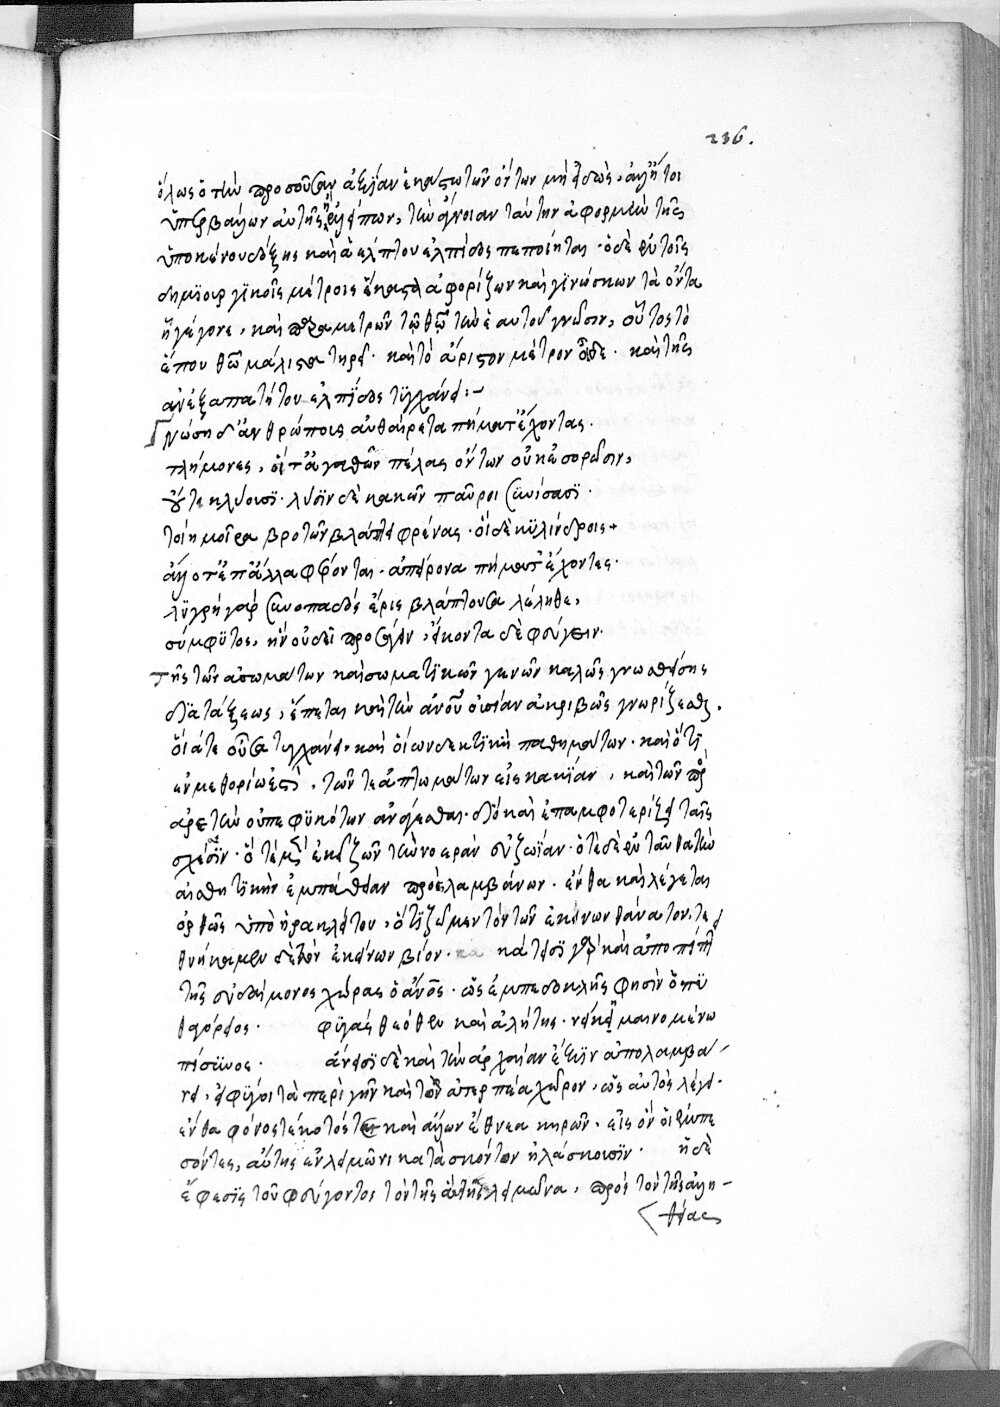 236.
ὅλως ὁ τὴν προσοῦσαν ἀξίαν ἑκάστω τῶν ὄντων μὴ εἰδὼς, ἀλλ' ἤτοι
ὑπερβάλλων αὐτῆς ἢ ἐλλείπων, τὴν ἄγνοιαν ταύτην ἀφορμὴν τῆς
ὑποκένου δόξης καὶ ἀνελπίστου ἐλπίδος πεποίηται· ὁ δὲ ἐν τοῖς
δημϊουργϊκοῖς μέτροις ἕκαστα ἀφορίζων καὶ γϊνώσκων τὰ ὄντα
ἧ γέγονε, καὶ παραμετρῶν τῷ θεῷ τὴν ἑαυτοῦ γνῶσιν, οὗτος τὸ
ἕπου θεῷ μάλιστα τηρεῖ· καὶ τὸ ἄριστον μέτρον οἶδε· καὶ τῆς
ἀνεξαπατήτου ἐλπΐδος τϋγχάνει:-
Γνώση δ' ἀνθρώπους αὐθαίρετα πήματ' ἔχοντας·
τλήμονες, οἵτ' ἀγαθῶν πέλας ὄντων οὐκ ἐσορῶσιν,
οὔτε κλύουσϊ· λύσϊν δὲ κακῶν παῦροι συνίσασϊ·
τοίη μοῖρα βροτῶν βλάπτει φρένας· οἱ δὲ κϋλίνδροις
ἄλλοτ' ἐπ' ἄλλα φέρονται· ἀπείρονα πήματ' ἔχοντες·
λϋγρὴ γὰρ συνοπαδὸς ἔρις βλάπτουσα λέληθε,
σύμφϋτος, ἣν οὐ δεῖ προσάγειν, εἴκοντα δὲ φεύγειν·
Τῆς τῶν ἀσωμάτων καὶ σωματϊκῶν γενῶν καλῶς γνωσθείσης
δϊατάξεως, ἕπεται καὶ τὴν ἀνου οὐσίαν ἀκριβῶς γνωρίζεσθαι.
οἵά τε οὖσα τυγχάνει· καὶ οἵων δεκτϊκὴ παθημάτων· καὶ ὅτϊ
ἐν μεθορίω ἐστὶ, τῶν τε ἀπτωμάτων εἰς κακΐαν, καὶ τῶν πρὸς
ἀρετὴν οὐ πεφϋκότων ἀνάγεσθαι· διὸ καὶ ἐπαμφοτερίζει ταῖς
σχέσεσϊν· ὁτὲ μὲν ἐκεῖ ζῶν τὴν νοερὰν εὐζωΐαν· ὁτὲ δὲ ἐνταῦθα τὴν
αἰσθητϊκὴν ἐμπάθειαν προσλαμβάνων· ἔνθα καὶ λέγεται
ὀρθῶς ὑπὸ ἡρακλείτου, ὅτϊ ζῶμεν τὸν τῶν ἐκείνων θάνατον, τε
θνήκαμεν δὲ τὸν ἐκείνων βίον· κάτεισϊ γὰρ καὶ ἀποπίπτει
τῆς εὐδαίμονος χώρας ὁ ἄνος· ὡς ἐμπεδοκλῆς φησὶν ὁ πϋ
θαγόρειος· φϋγὰς θεόθεν καὶ ἀλήτης· νείκεϊ μαινομένω
πίσϋνος· ἄνεισϊ δὲ καὶ τὴν ἀρχαίαν ἕξϊν ἀπολαμβά-
νει, εἰ φύγοι τὰ περὶ γῆν καὶ τὸν ἀτερπέα χῶρον, ὡς αὐτὸς λέγει·
ἔνθα φόνος τε κότος τε καὶ ἄλλων ἔθνεα κηρῶν· εἰς ὃν οἱ ἐμπε
σόντες, ἄτης ἐν λειμῶνι κατὰ σκότον ἠλάσκουσϊν· ἡ δὲ
ἔφεσϊς τοῦ φεύγοντος τὸν τῆς ἄτης λειμῶνα, πρὸς τὸν τῆς ἀλη-
θείας